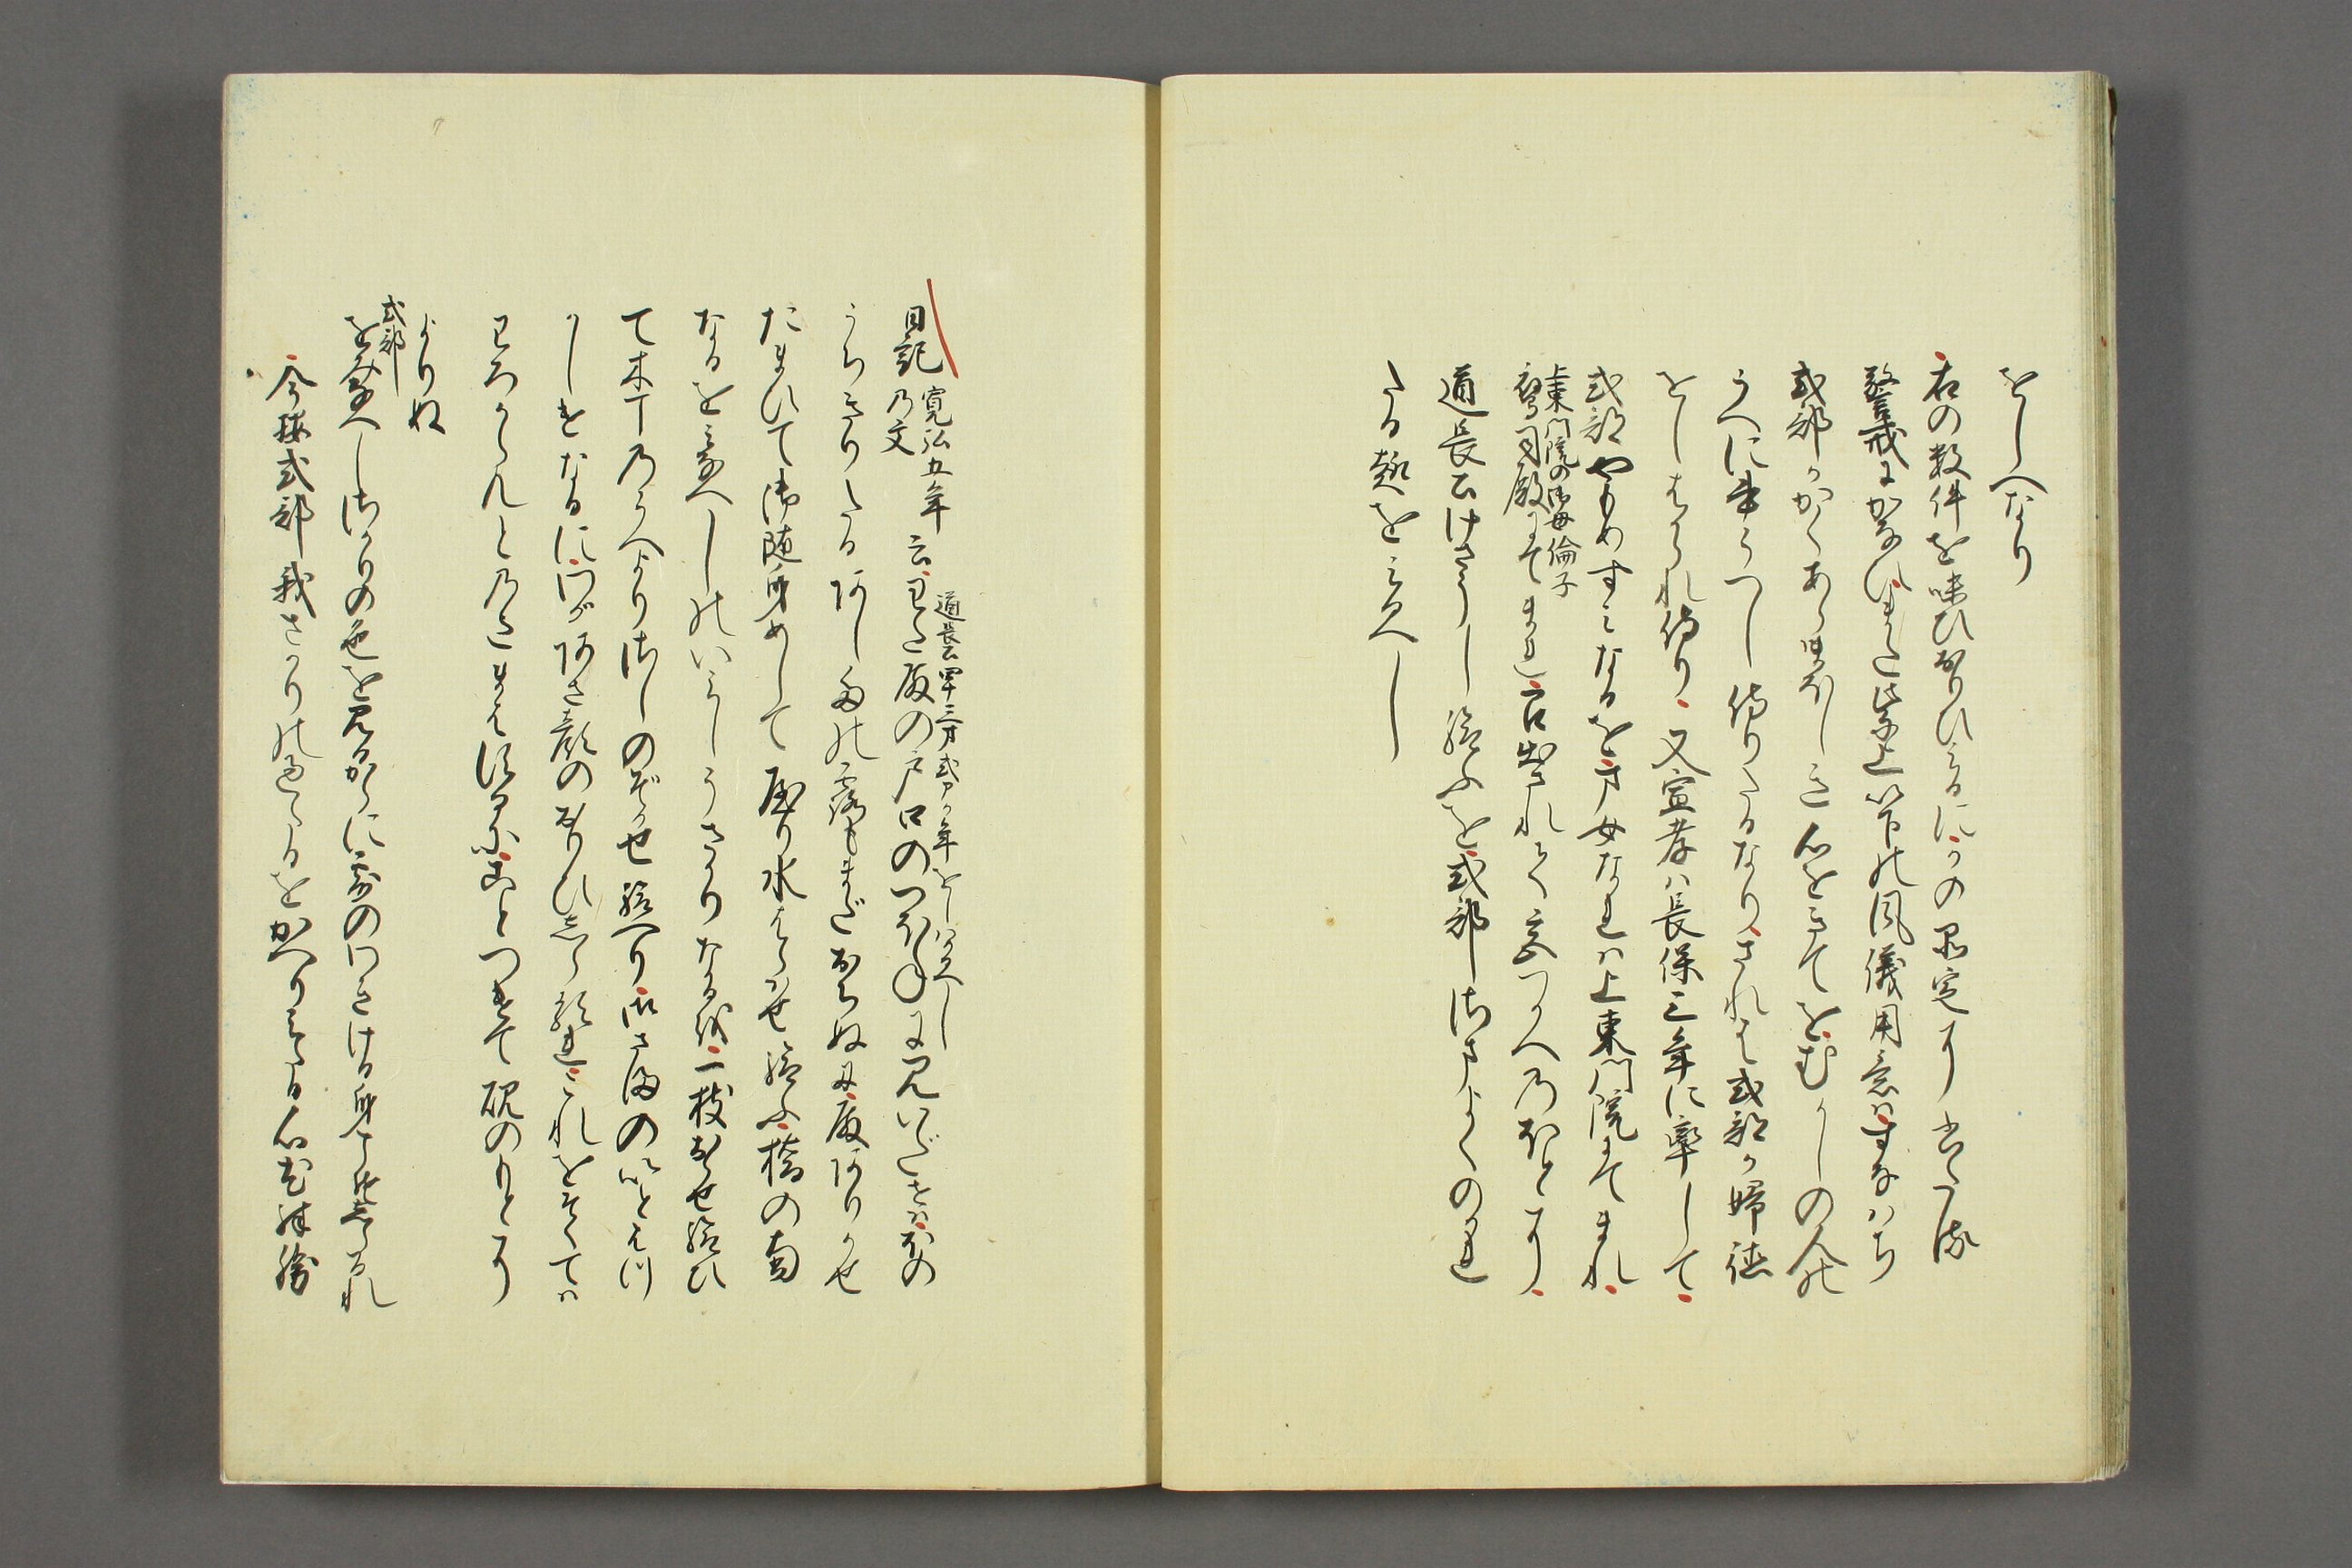 をしへなり
右の数件を味ひおもひみるにかの品定より出たる
警戒にかなひまた紫上以下の風儀用意はすなはち
式部かかくあらまほしき心をきてをむかしの人の
うへにまうつし侍りたるなりされは式部か婦徳
をしはられ侍り又宣孝は長保三年に率して
式部やもめすみなるをオ女なれは上東門院にてまれ
上東門院の御母倫子
鷹司殿にてまれ召出されて宮つかへのほとより
道長公けさうし給ふを式部つよくのかれ
たる趣をみるへし
日記
寛弘五年
乃文
云
道長公四十三才式部か年をしはるへし
わた殿の戸口のつほねに見いだせはほの
うちきりたるあしたの露もまだおちぬに殿ありかせ
たまひて御随身めして遣り水はらはせ給ふ橋の南
なるをみなへしのいみしうさかりなるを一枝おらせ給ひ
て木丁のうへよりさしのぞかせ給へり御さまのいとはつ
かしけなるにわが朝かほのおもひしらるれはこれをそくては
わろからんとのたまはするにことつけて硯のもとに
よりぬ
式部
をみなへしさかりの色を見るからに露のわきける身こそしらるれ
今按式部我さかりの過たるをかへりみたる心尤殊勝